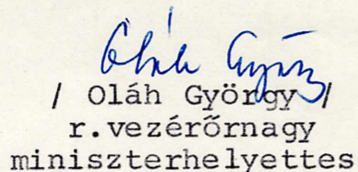 Oláh György
/ Oláh György /
r.vezérőrnagy
miniszterhelyettes